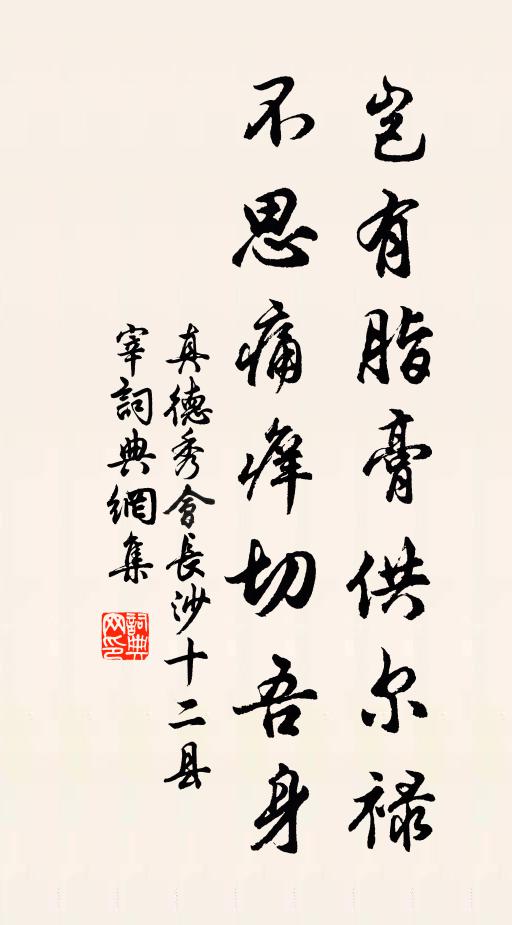 岂有脂膏供尔禄
不思痛痒切吾身
真德秀會長沙十二县
宰詞典網集
詞典
网印